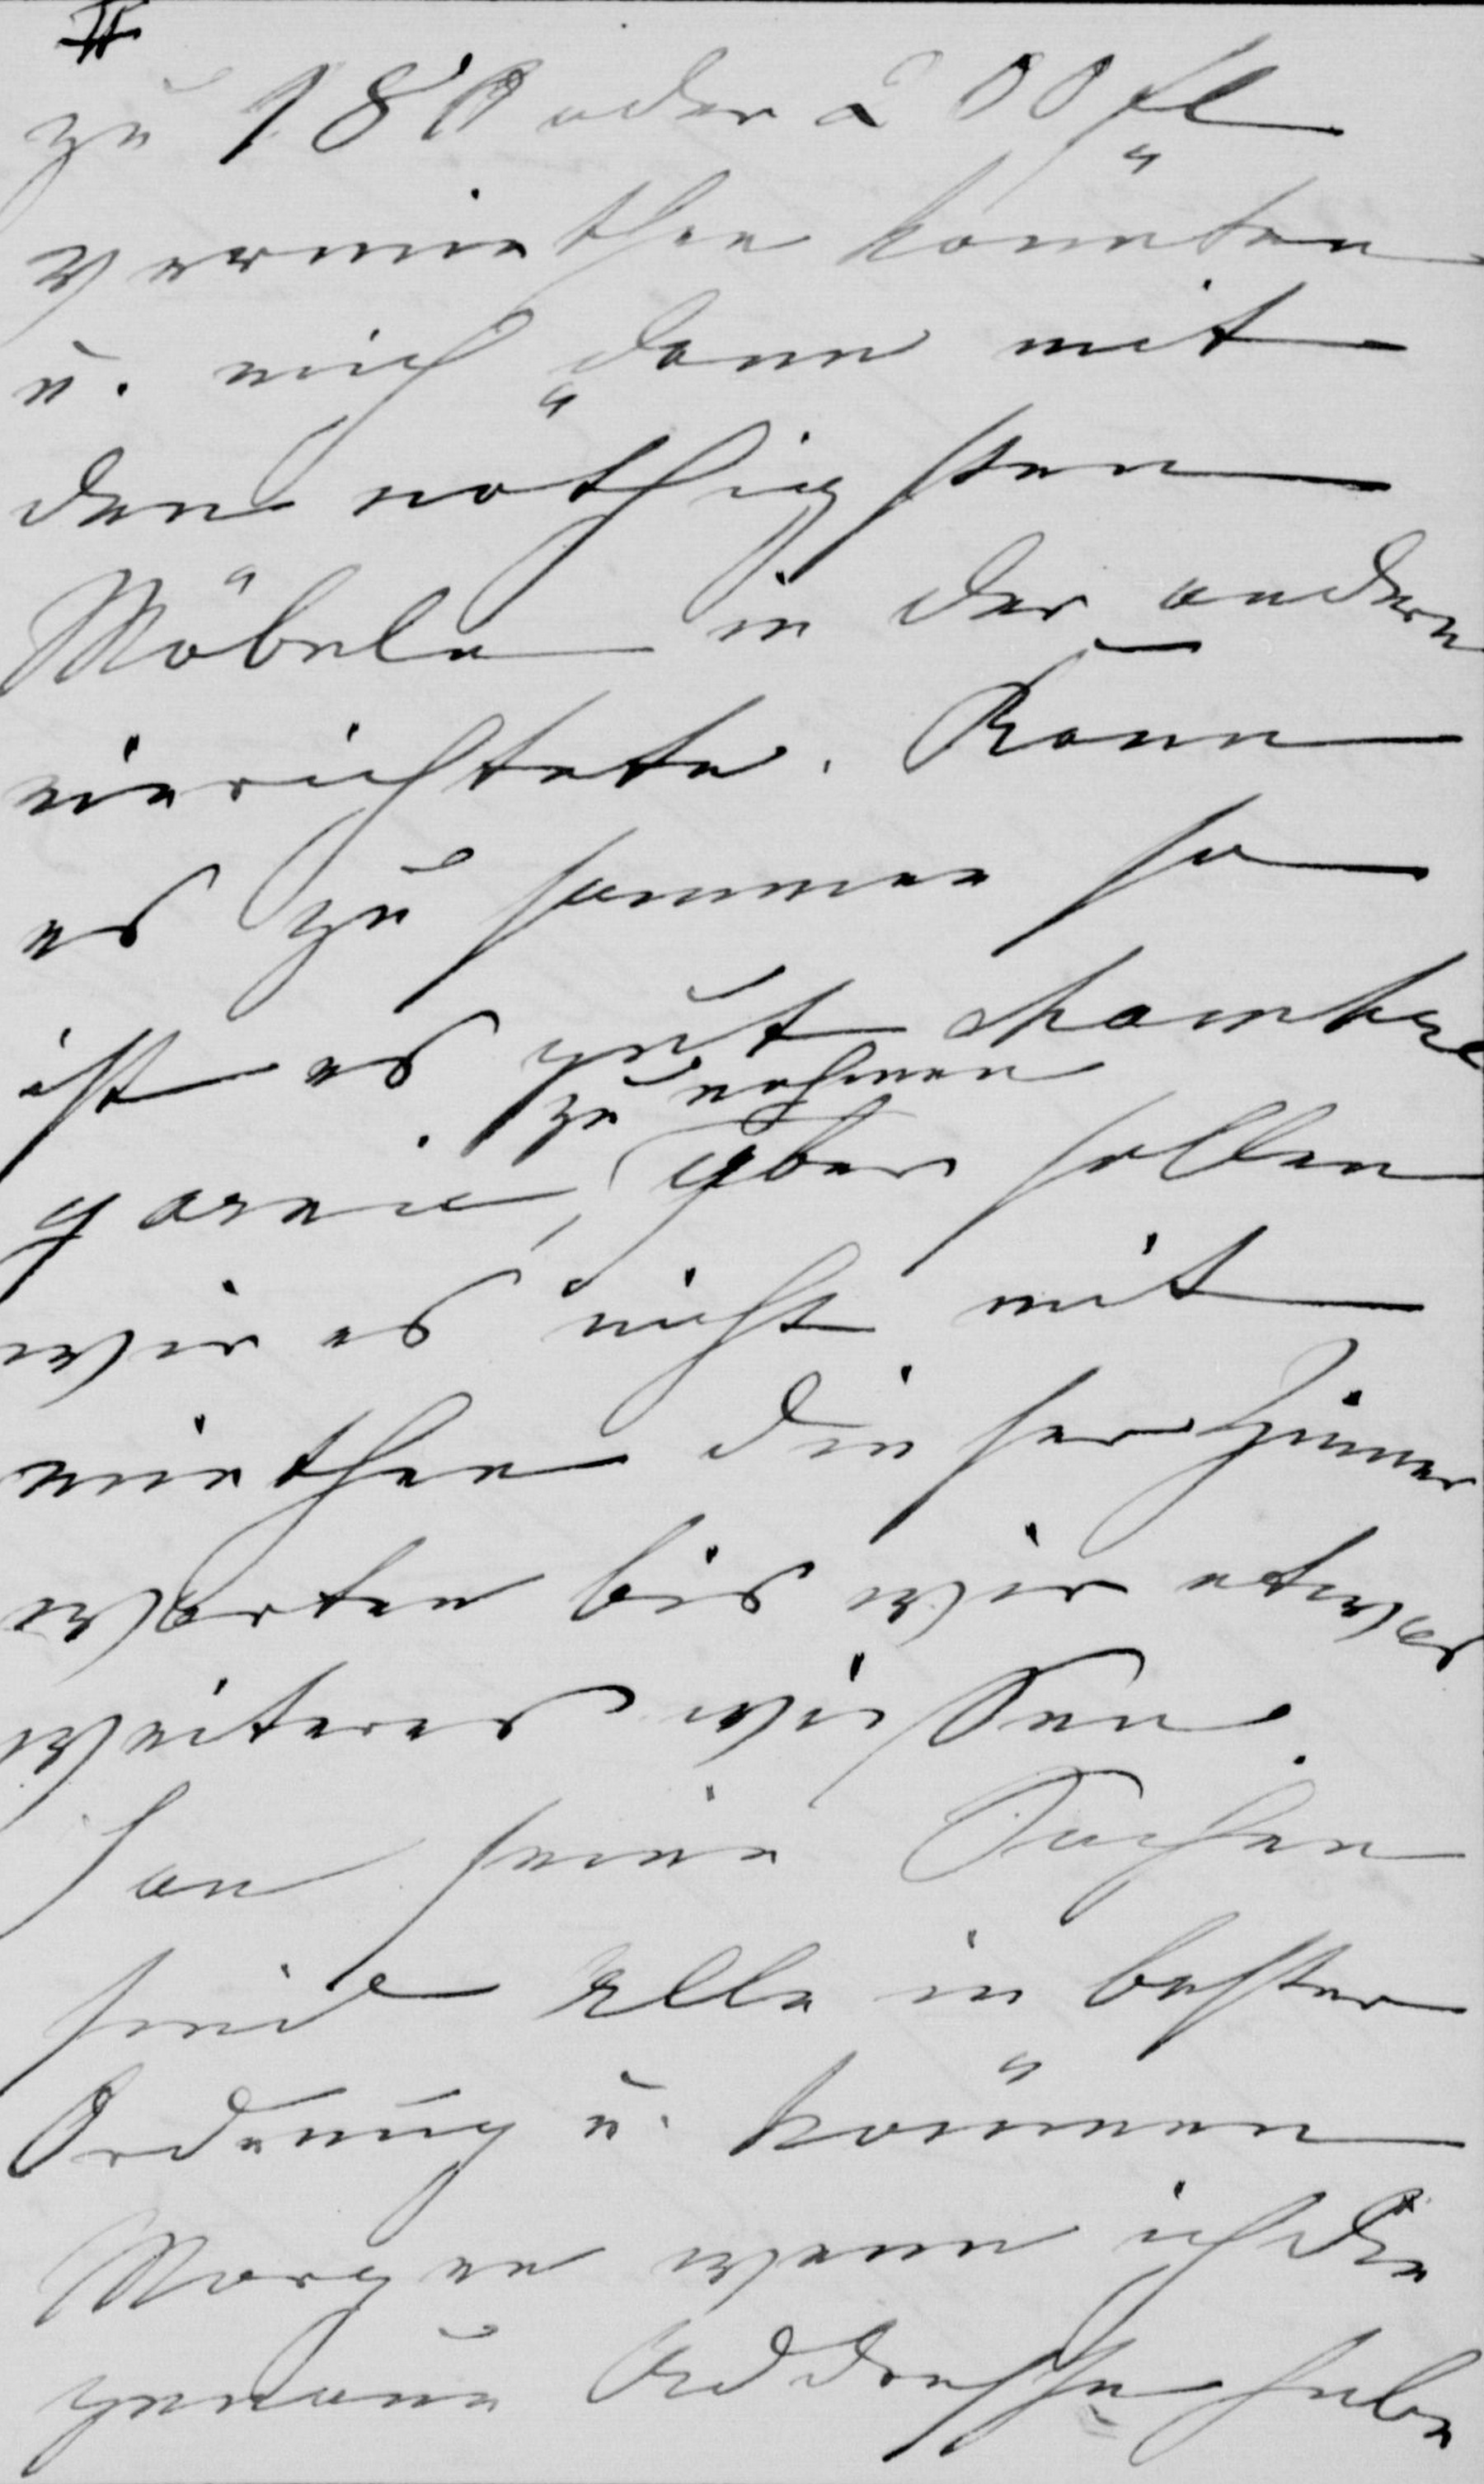 II
zu 180 oder 200 fl
vermiethen könnten
u. mich dann mit
den nöthigsten
Möbeln in der andern
einrichtete. Kann
es zu sammen so
ist es gut chambre
zu nehmen
garnie, aber sollen
wir es nicht mit
miethen dieser Zimmer
warten bis wir etwas
weiteres wissen.
seine Sachen
sind Alle in bester
Ordnung u. können
Morgen wenn ich die
genaue Addresse habe